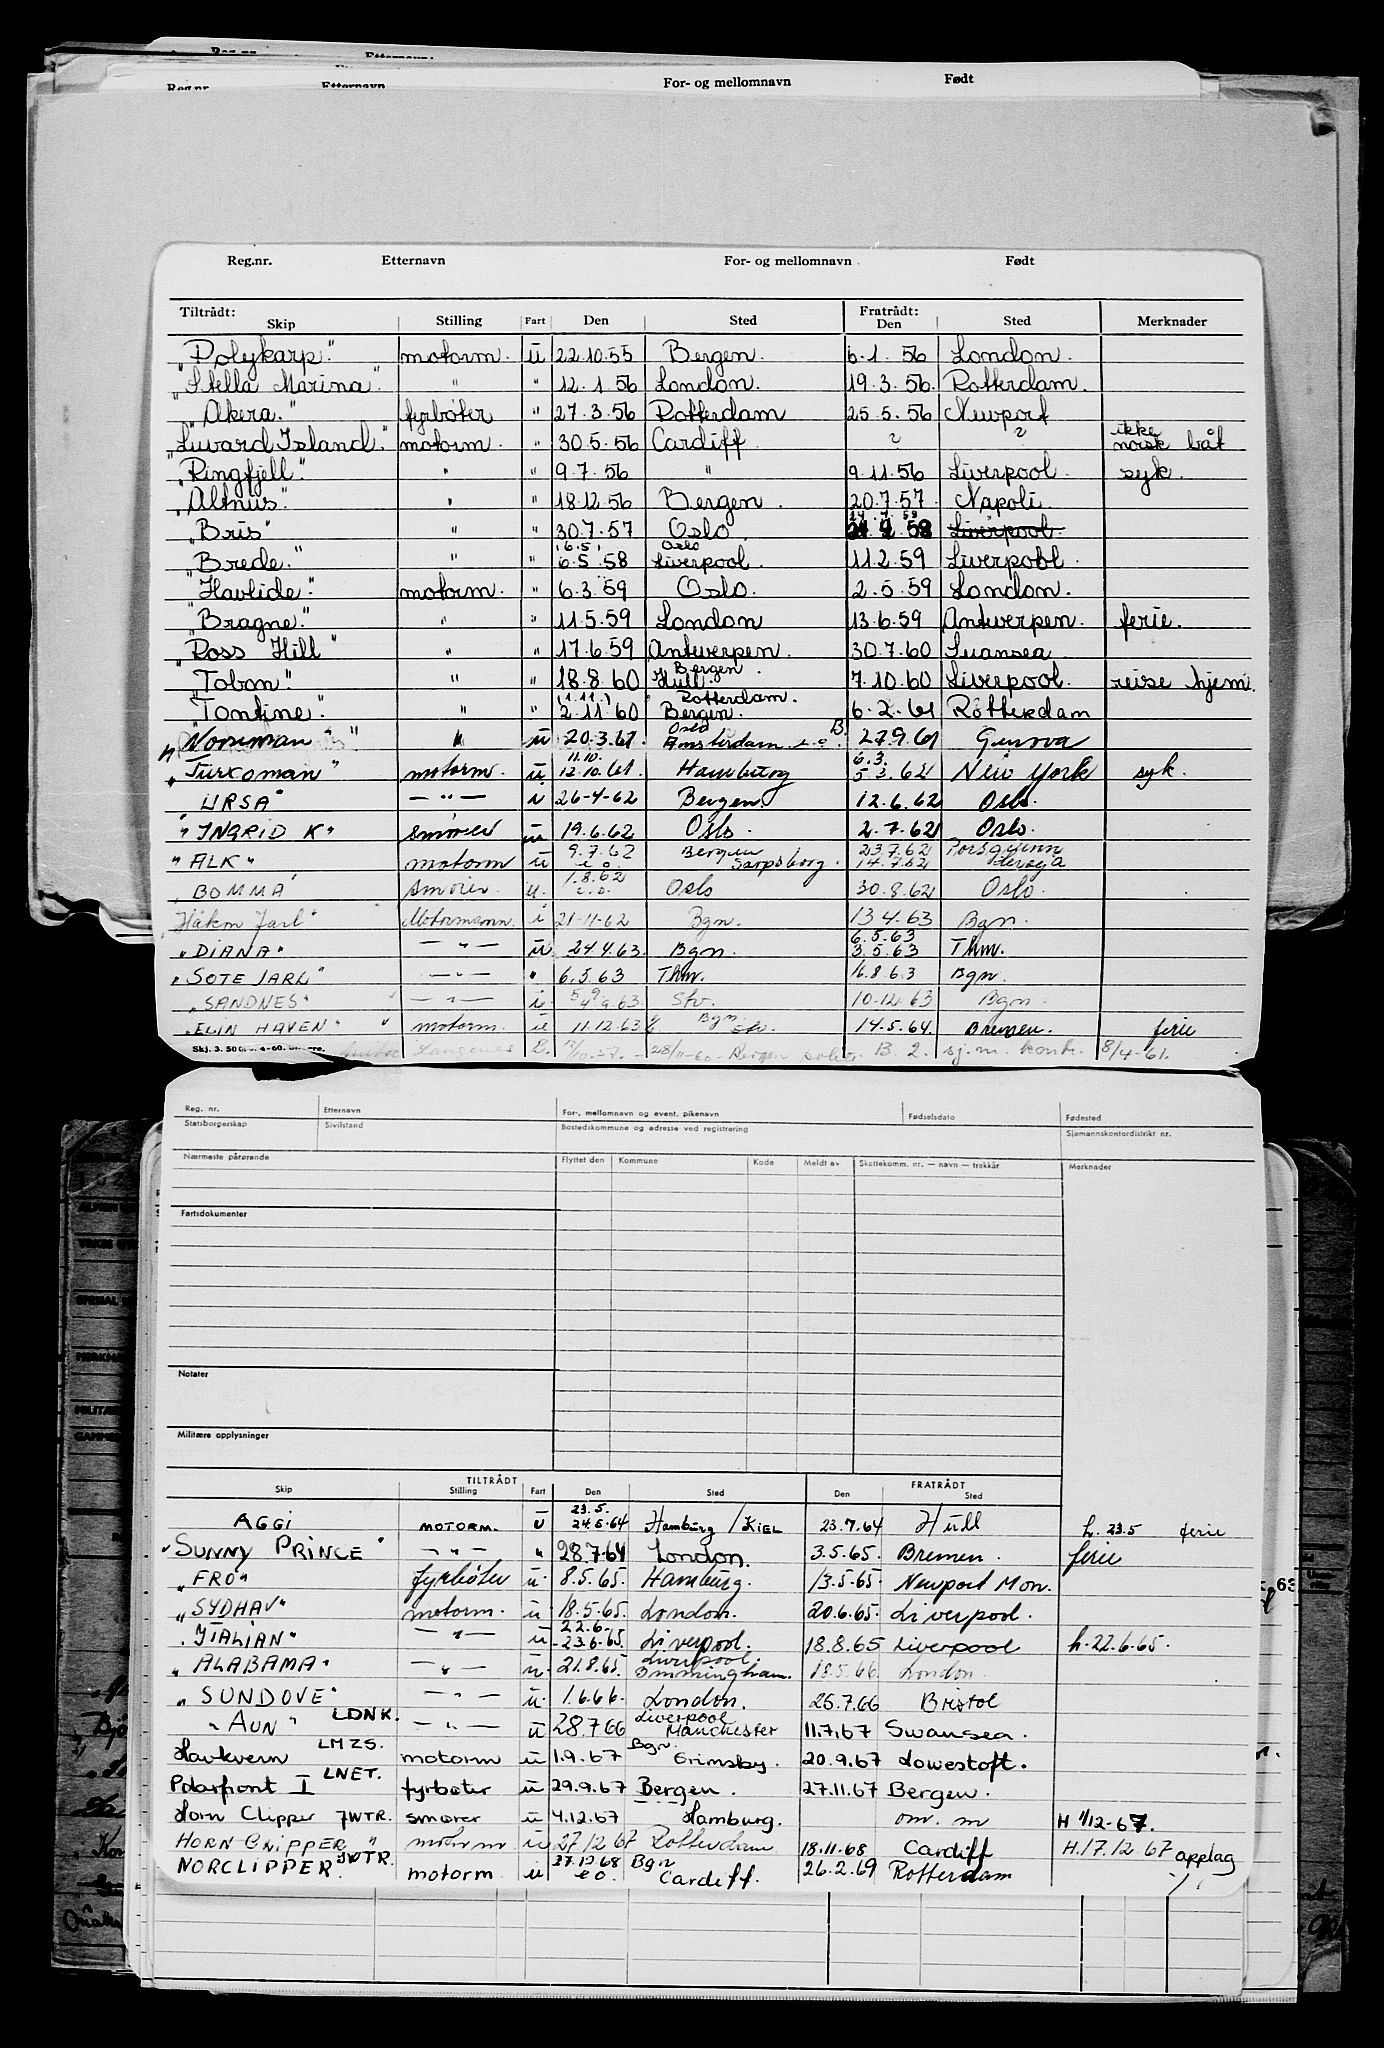 Reg.nr. Etternavn:
Reg.nr. Etternavn For- og mellomnavn Født
Reg.nr. Etternavn For- og mellomnavn Født
Tiltrådt: Skip Stilling Fart Den Sted Fratrådt: Den Sted Merknader
"Polykarp." motorm. u 22.10.55 Bergen. 6.1.56 London.
"Stella Marina". " " 12.1.56 London. 19.3.56. Rotterdam.
"Akera." fyrbøter " 27.3.56 Rotterdam 25.5.56 Newport
"Luvard Island." motorm. " 30.5.56 Cardiff ? ? ikke norsk båt
"Ringfjell". " " 9.7.56 " 9.11.56 Liverpool. syk.
"Altnus". " " 18.12.56 Bergen. 20.7.57. Napoli.
"Bris" " " 30.7.57 Oslo. 58 Liverpool.
"Brede." " " 6.5.58 (6.5) Liverpool. Oslo 11.2.59 Liverpool.
"Havlide". motorm. " 6.3.59 Oslo. 2.5.59 London.
"Bragne". " " 11.5.59 London 13.6.59 Antwerpen. ferie.
"Ross Hill" " " 17.6.59 Antwerpen. 30.7.60 Swansea
"Tobon". " " 18.8.60 Hull. Bergen 7.10.60 Liverpool. reise hjem.
"Tontine". " " 2.11.60 (1.11.) Bergen. Rotterdam. 6.2.61 Rotterdam
"Norseman" " u 20.3.61. Oslo Amsterdam 27.9.61 Genova
"Turcoman" motorm. u 11.10. 12.10.61 Hamburg 6.3. 5.3.62 New York syk.
"URSA" — " — i 26-4-62 Bergen. 12.6.62 Oslo.
"INGRID K" smører u 19.6.62 Oslo. 2.7.62 Oslo.
"ALK" motorm u 9.7.62 Bergen Sarpsborg. 23.7.62 14.7.62 Porsgrunn Herøya
"BOMMA" smører. u. 1.8.62 Oslo 30.8.62 Oslo.
"Håkon Jarl" Motormann. i 21-11-62 Bgn. 13.4.63 Bgn.
"DIANA" — " — u. 24.4.63. Bgn. 6.5.63 3.5.63 Thm.
"SOTE JARL" — " — " 6.5.63 Thm. 16.8.63 Bgn.
"SANDNES" — " — i. 63. Stv. 10-12.63 Bgn.
"ELIN HAVEN" motorm. u 11.12.63 Bgn. Stv. 14.5.64. Bremen. ferie
Skj. 3. B. 17/10.57. – 28/11-60 – Bergen B. 2. sj.m. kontr. 8/4-61.
Reg. nr. Etternavn For-, mellomnavn og event. pikenavn Fødselsdato Fødested
Statsborgerskap Sivilstand Bostedskommune og adresse ved registrering Sjømannskontordistrikt nr.
Nærmeste pårørende Flyttet den Kommune Kode Meldt av Skattekomm. nr. — navn — trekkår Merknader
Fartsdokumenter
Notater
Militære opplysninger
TILTRÅDT FRATRÅDT
Skip Stilling Fart Den Sted Den Sted
AGGI MOTORM. u 23.5. 24.5.64 Hamburg / KIEL 23.7.64 Hull h. 23.5 ferie
"SUNNY PRINCE" — " — " 28.7.64 London. 3.5.65. Bremen. ferie
"FRO" fyrbøter u. 8.5.65. Hamburg. 13.5.65. Newport Mon.
"SYDHAV" motorm. u. 18.5.65. London. 20.6.65. Liverpool.
"ITALIAN" — " — u 22.6. 23.6.65. Liverpool. 18.8.65 Liverpool h. 22.6.65.
"ALABAMA" — " — u. 21.8.65. Liverpool. Immingham. 18.5.66 London.
"SUNDOVE" — " — u. 1.6.66. London. 25.7.66 Bristol
"AUN" LDNK. — " — u 28.7.66 Liverpool Manchester 11.7.67 Swansea.
Havkvern LMZS. motorm u 1.9.67 Bgn. Grimsby. 20.9.67 Lowestoft.
Polarfront I LNET. fyrbøter u 29.9.67 Bergen. 27.11.67 Bergen.
Horn Clipper JWTR. smører u 4.12.67 Hamburg. om. m H 1/12-67.
HORN CLIPPER " motorm u 27.12.67 Rotterdam 18.11.68 Cardiff H.17.12.67 opplag
NORCLIPPER. JWTR. motorm u 27.12.68 e.o. Bgn Cardiff. 26.2.69 Rotterdam